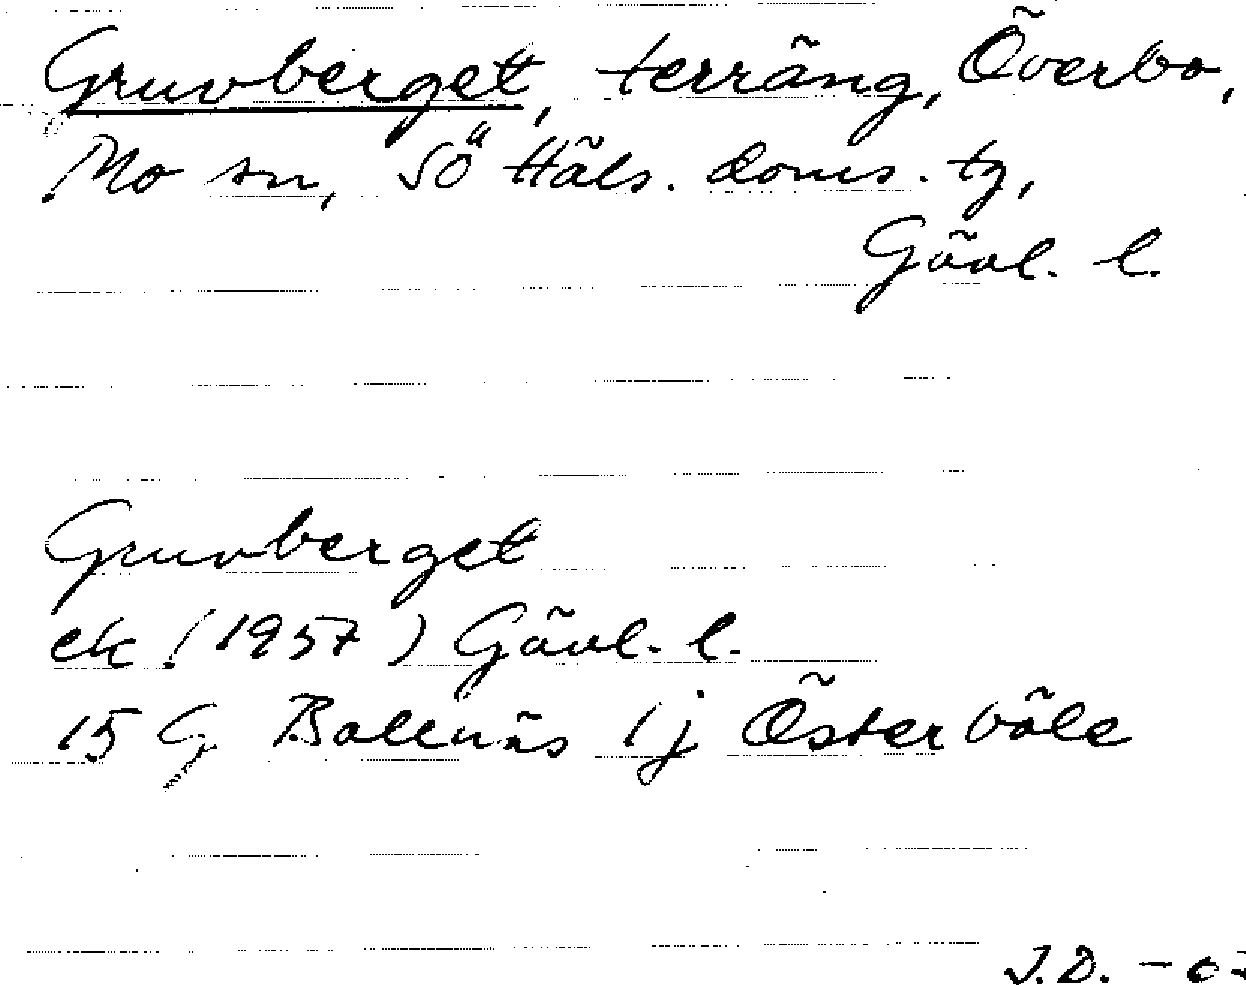 Gruvberget, terräng, Överbo,
Mo sn, Sö Häls. doms. tg,
Gävl. l.
Gruvberget
ek (1957) Gävl. l.
15 G Bollnäs 1j Österböle
J.D. -